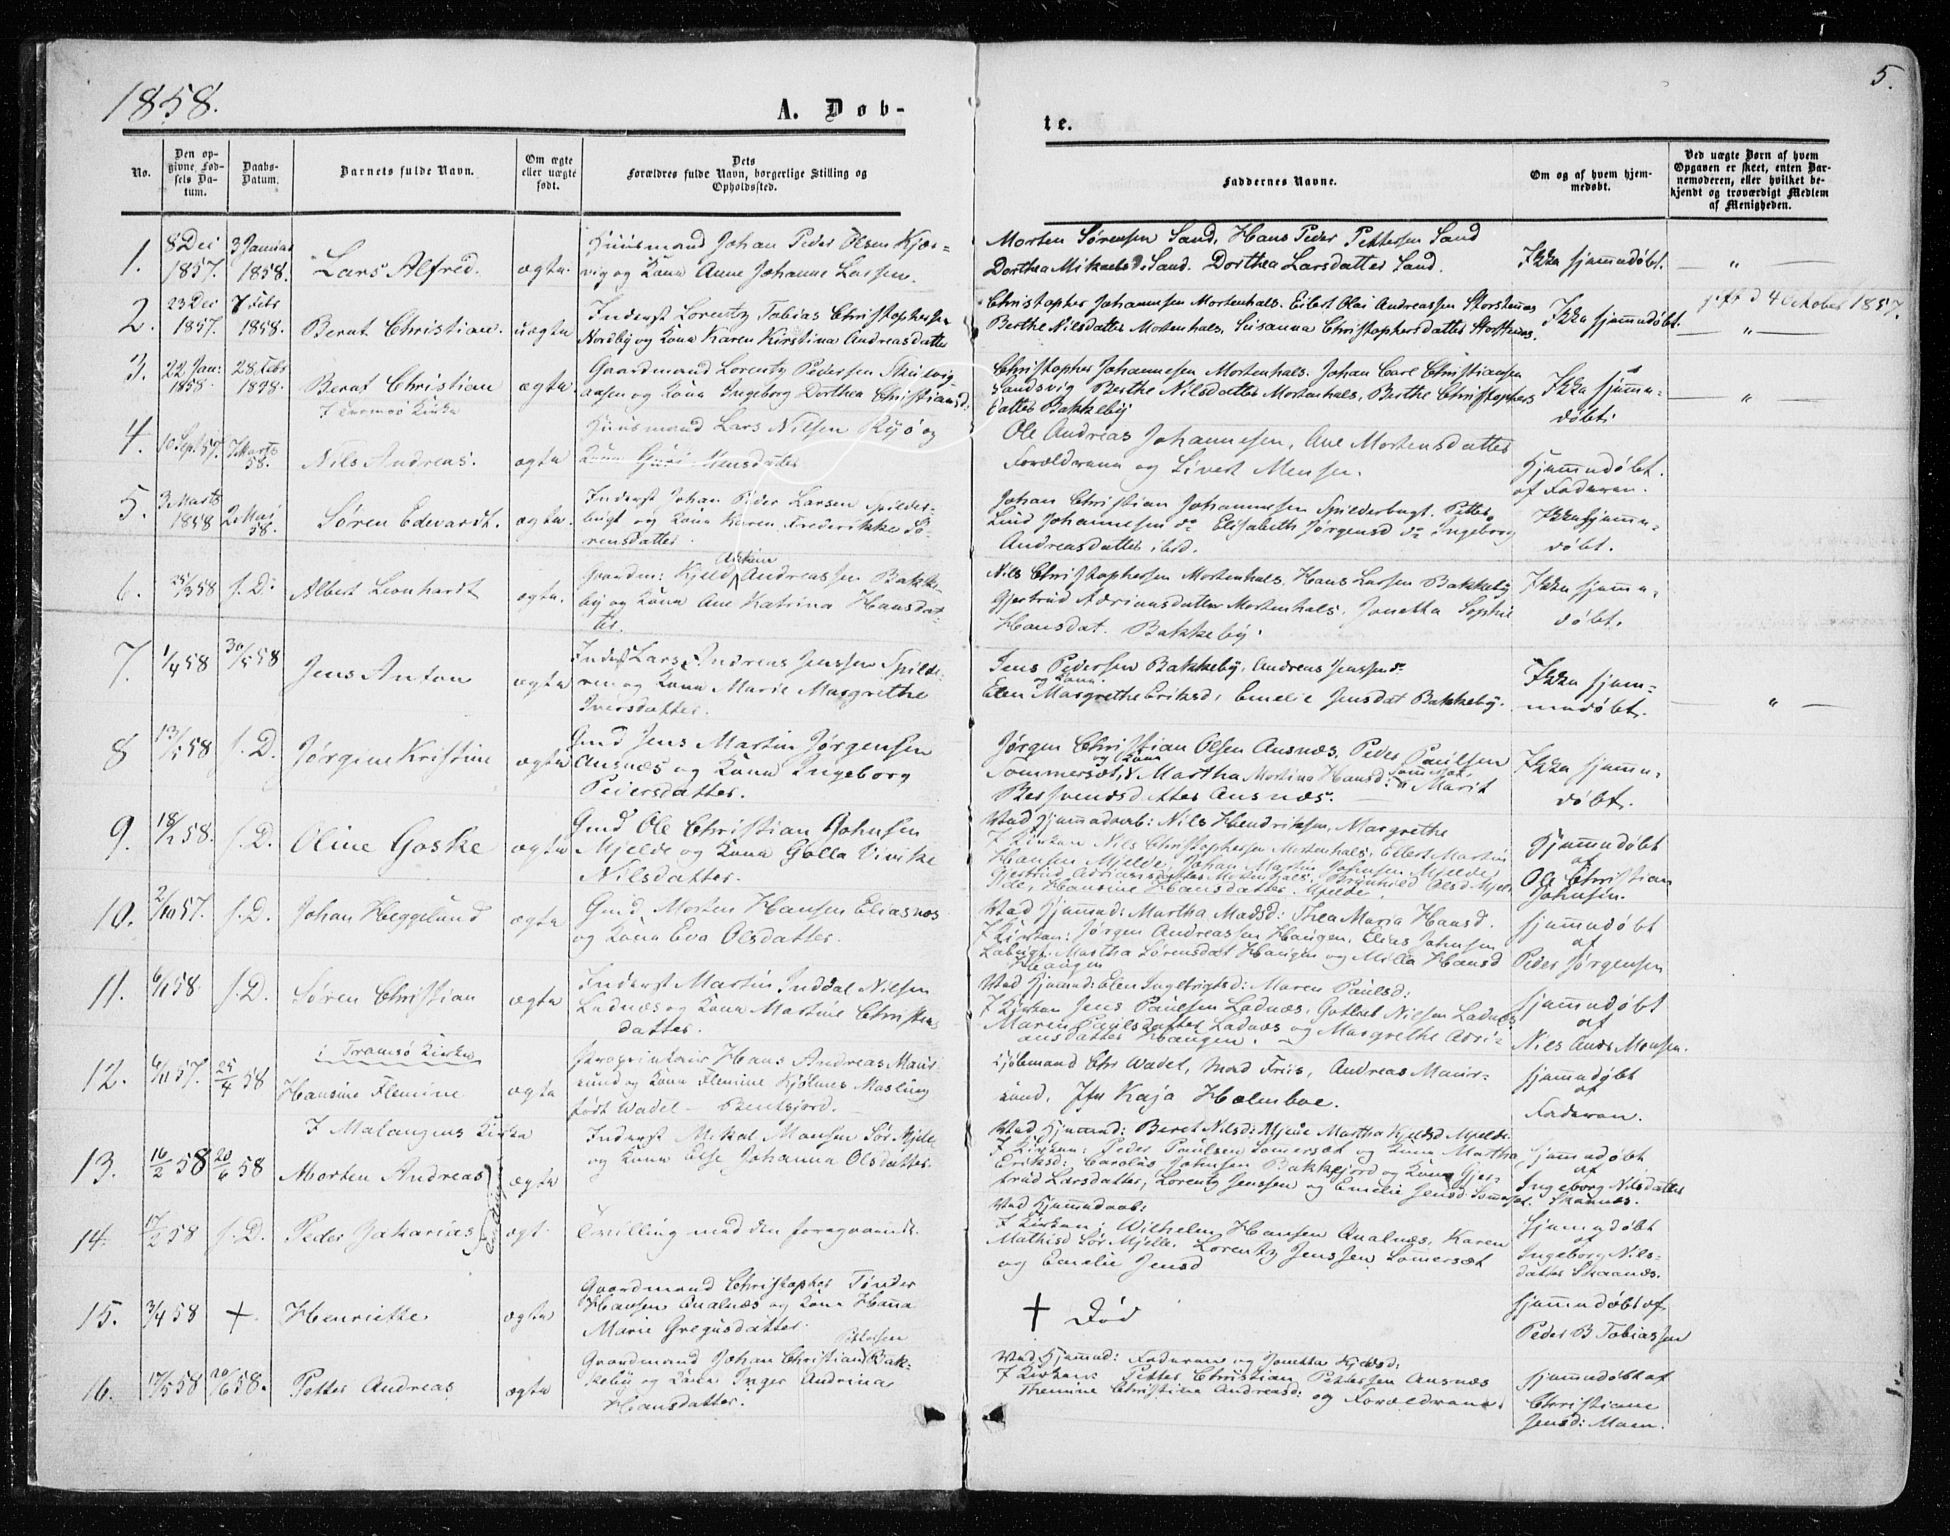 1858.
A. Døb-
te.
5.
No.
Den op-
givne Fød-
sels Da-
tum.
Daabs-
Datum.
Barnets fulde Navn.
Om ægte
eller uægte
født.
Dets
Forældres fulde Navn, borgerlige Stilling og
Opholdssted.
Faddernes Navne.
Om og af hvem hjem-
medøbt.
Ved uægte Børn af hvem
Opgaven er skeet, enten Bar-
nemoderen, eller hvilket be-
kjendt og troværdigt Medlem
af Menigheden.
1.
8 Dec
1857.
3 Januar
1858.
Lars Alfred.
ægte.
Huusmand Johan Peder Olsen Kjær-
vig og Kone Anne Johanne Larsen.
Morten Sørensen Sand, Hans Peder Pettersen Sand
Dorthea Mikaelsd. Sand. Dorthea Larsdatter Sand.
Ikke hjemmedøbt.
— " —
2.
23 Dec
1857.
7 Febr
1858.
Bernt Christian.
uægte
Inderst Lorentz Tobias Christophersen
Nordby og Kone Karen Kirstina Andreasdatter
Christopher Johannesen Mortenhals. Eilert Olai Andreassen Storstennæs
Berthe Nilsdatter Mortenhals, Susanna Christophersdatter Storstennæs.
Ikke hjemmedøbt.
gift d 4 October 1857.
— " —
3.
22 Jan:
1858.
28 Febr
1898.
Bernt Christian
ægte
Gaardmand Lorentz Pedersen
og Kone Ingeborg Dorthea Christiansd.
Christopher Johannesen Mortenhals. Johan Carl Christiansen
Sandsvig Berthe Nilsdatter Mortenhals, Berthe Christophers
datter Bakkeby
Ikke hjemme-
døbt.
— " —
4.
I Tromsø Kirke
10 Sept. 57.
7 Marts
58.
Nils Andreas.
ægte
Huusmand Lars Nilsen Ryø og
Kone Guri Mensdatter
Ole Andreas Johannesen, Ane Mortensdatter
Forældrene og Sivert Mensen.
Hjemmedøbt.
af Faderen.
5.
3 Marts
1858
2 Mai
58.
Søren Edevardt.
ægte.
Inderst Johan Peder Larsen Spilder-
bugt og Kone Karen Frederikke Sø-
rensdatter.
Johan Christian Johannesen Spilderbugt. Petter
Lind Johannesen do Elisabeth Jørgensd do Ingeborg
Andreasdatter ibid.
Ikke hjemme-
døbt.
6.
25/3 58
s. D.
Albert Leonhardt
ægte.
Gaardm: Kjeld Andreassen Bakke-
by og Kone Ane Katrina Hansdat-
ter.
Nils Christophersen Mortenhals. Hans Larsen Bakkeby
Gjertrud Adriansdatter Mortenhals. Jonetta Sophie
Hansdat. Bakkeby.
Ikke hjemme-
døbt.
7.
1/4 58
30/5 58
Jens Anton
ægte
Inderst Lars Andreas Jenssen Spilde-
ren og Kone Marie Margrethe
Iversdatter.
Jens Pedersen Bakkeby, Andreas Jenssen do
og Kone
Elen Margrethe Eriksd, Emelie Jensdat Bakkeby.
Ikke hjem-
medøbt.
— " —
8
13/5 58
s. D.
Jørgine Kristine
ægte
Gmd Jens Martin Jørgensen
Ansnæs og Kone Ingeborg
Pedersdatter.
Jørgen Christian Olsen Ansnæs. Peder Paulsen
og Kone
Sommersæt, Martha Mortina Hansd: Sommersæt. Marit
datter Ansnæs.
Ikke hjemme-
døbt.
9.
18/1 58.
s. D.
Oline Goske
ægte
Gmd Ole Christian Johnsen
Mjelde og Kone Golla Vivike
Nilsdatter.
Ved Hjemmedaab: Nils Hendriksen, Margrethe
I Kirken Nils Christophersen Mortenhals. Ellert Martin
Hansen Mjelde, Johan Martin Johnsen Mjelde
Gjertrud Adriansdatter Mortenhals, Brynhild Olsd Mjel-
de, Hansine Hansdatter Mjelde.
Hjemmedøbt
af
Ole Christian
Johnsen.
10.
2/10 57.
s. D.
Johan Heggelund
ægte
Gmd. Morten Hansen Eliasnæs
og Kone Eva Olsdatter.
Ved Hjemmed: Martha Madsd: Thea Maria Hansd.
I Kirken: Jørgen Andreassen Haugen, Elias Johnsen
Martha Sørensdat Haugen og Milla Hansd
Haugen
hjemmedøbt
af
Peder Jørgensen
11.
6/1 58.
s. D.
Søren Christian
ægte
Inderst Martin Inddal Nilsen
Ladnæs og Kone Martine Christens
datter.
Ved Hjemmed: Elen Ingebrigtsd: Maren Paulsd:
I Kirken Jens Paulsen Ladnæs, Gotlieb Nilsen Ladnæs
Maren Paulsdatter Ladnæs og Margrethe Adri-
ansdatter Haugen.
hjemmedøbt
af
Nils Andr Monsen.
12.
i Tromsø Kirke
6/11 57.
25/4 58
Hansine Flemine
ægte
Proprietair Hans Andreas Maur-
sund og Kone Flemine Kjølmer Maslung
født Wadel — Bentsjord.
Kjøbmand Chr Wadel, Mad Friis, Andreas Maur-
sund, Jfr Kaja Holmboe.
hjemmedøbt
af
Faderen.
13.
I Malangens Kirke
16/2 58
20/6 58
Morten Andreas
ægte
Inderst Mikal Monsen Sør Mjele
og Kone Else Johanna Olsdatter.
Ved Hjemmed: Beret Nilsd: Mjele Martha Kjeldsd Mjelde
I Kirken: Peder Paulsen Somersæt og Kone Martha
Eriksd: Carolus Johnsen Bakkejord og Kone Gjer-
trud Larsdatter, Lorentz Jenssen og Emelie Jensd: Somersæt.
hjemmedøbt
af
Ingeborg Nilsdatter
Skaanæs.
14.
17/2 58
s. D.
Peder Zakarias
ægt.
Tvilling med den foregaaende.
Ved Hjemmedaab:
I Kirken: Wilhelm Hansen Qvalnæs, Karen
Mathisd Sør Mjelle. Lorentz Jenssen Somersæt
og Emelie Jensd
hjemmedøbt
af
Ingeborg Nils-
datter Skaanæs.
15.
3/4 58
+
Henriette
ægte
Gaardmand Christopher Tønder
Hansen Qvalnæs og Kone Hanna
Marie Gregusdatter.
† Død
hjemmedøbt af
Peder B Tobiassen
16.
17/5 58
20/6 58.
Petter Andreas
ægte
Pettersen
Gaardmand Johan Christian Bak-
keby og Kone Inger Andrina
Hansdatter.
Ved Hjemmed: Faderen og Jonetta Kjeldsd:
I Kirken: Petter Christian Pettersen Ansnæs
Themine Christina Andreasd: og Forældrene.
hjemmedøbt af
Christiane
Jensd: Moen.